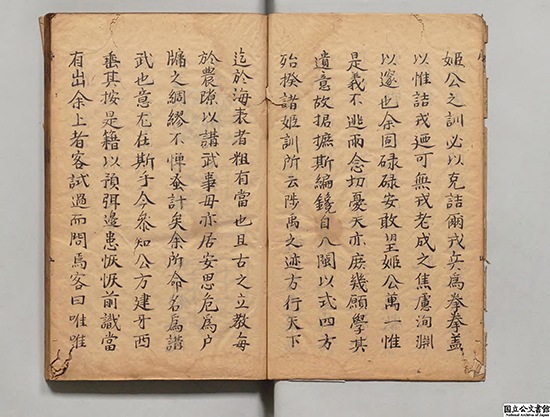 姬公之訓必以克詰爾戎兵為拳拳盖
以惟詰戎廼可無戎老成之焦慮洵淵
以邃也余固碌碌安敢望姬公萬一惟
是義不逃雨念切憂天亦庶幾願學其
遺意故据摭斯編鏡自八閩以式四方
殆揆諸姬訓所云陟禹之迹方行天下
迄於海表者粗有當也且古之立教每
於農隙以講武事毋亦居安思危為戶
牖之綢繆不憚蚤計矣余所命名為講
武也意尤在斯乎今叅知公方建牙西
垂其按是籍以預弭邊患恢恢前識當
有出余上者客試過而問焉客曰唯唯
国立公文書館
National Archives of Japan